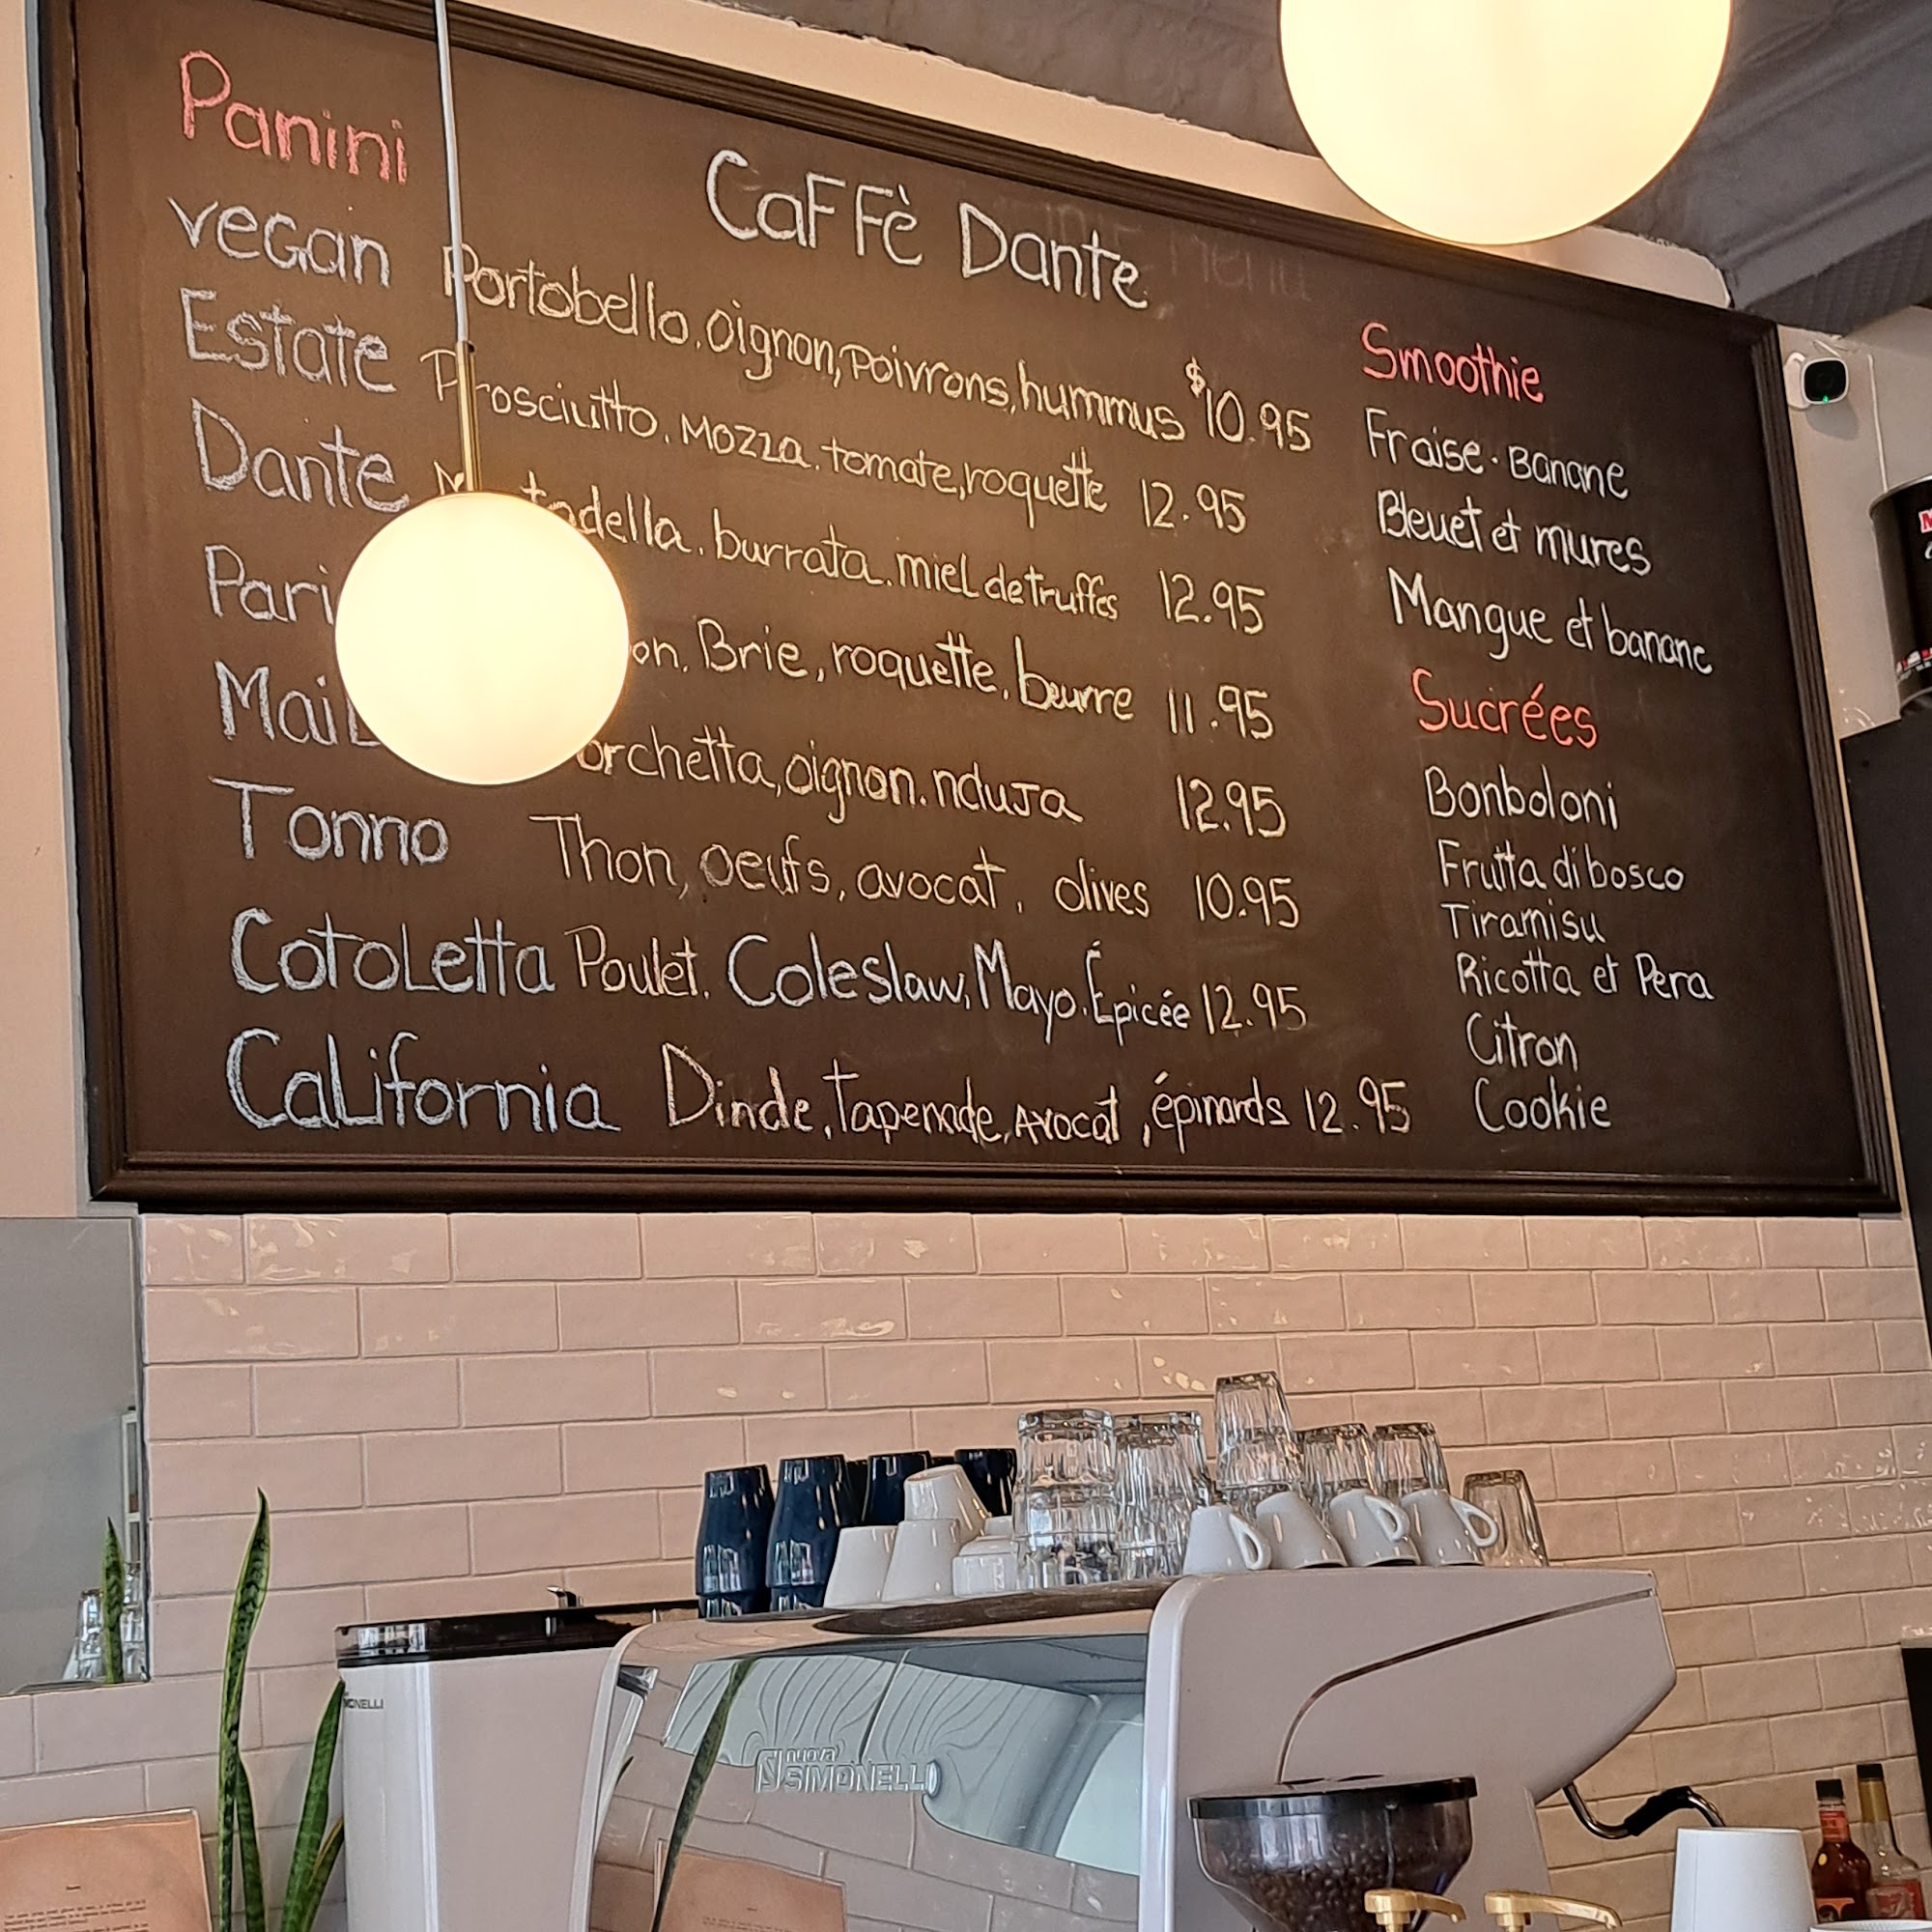 Panini
CaFFè Dante
vegan Portobello, oignon, poivrons, hummus $10.95
Estate Prosciutto. Mozza. tomate, roquette 12.95
Dante burrata. miel de truffes 12.95
Brie, roquette, beurre 11.95
oignon. nduja 12.95
Tonno Thon, oeufs, avocat, olives 10.95
Cotoletta Poulet, Coleslaw, Mayo. Épicée 12.95
California Dinde, tapenade, avocat, épinards 12.95
Smoothie
Fraise. Banane
Bleuet et mures
Mangue et banane
Sucrées
Bonboloni
Frutta di bosco
Tiramisu
Ricotta et Pera
Citron
Cookie
nuova
SIMONELLI